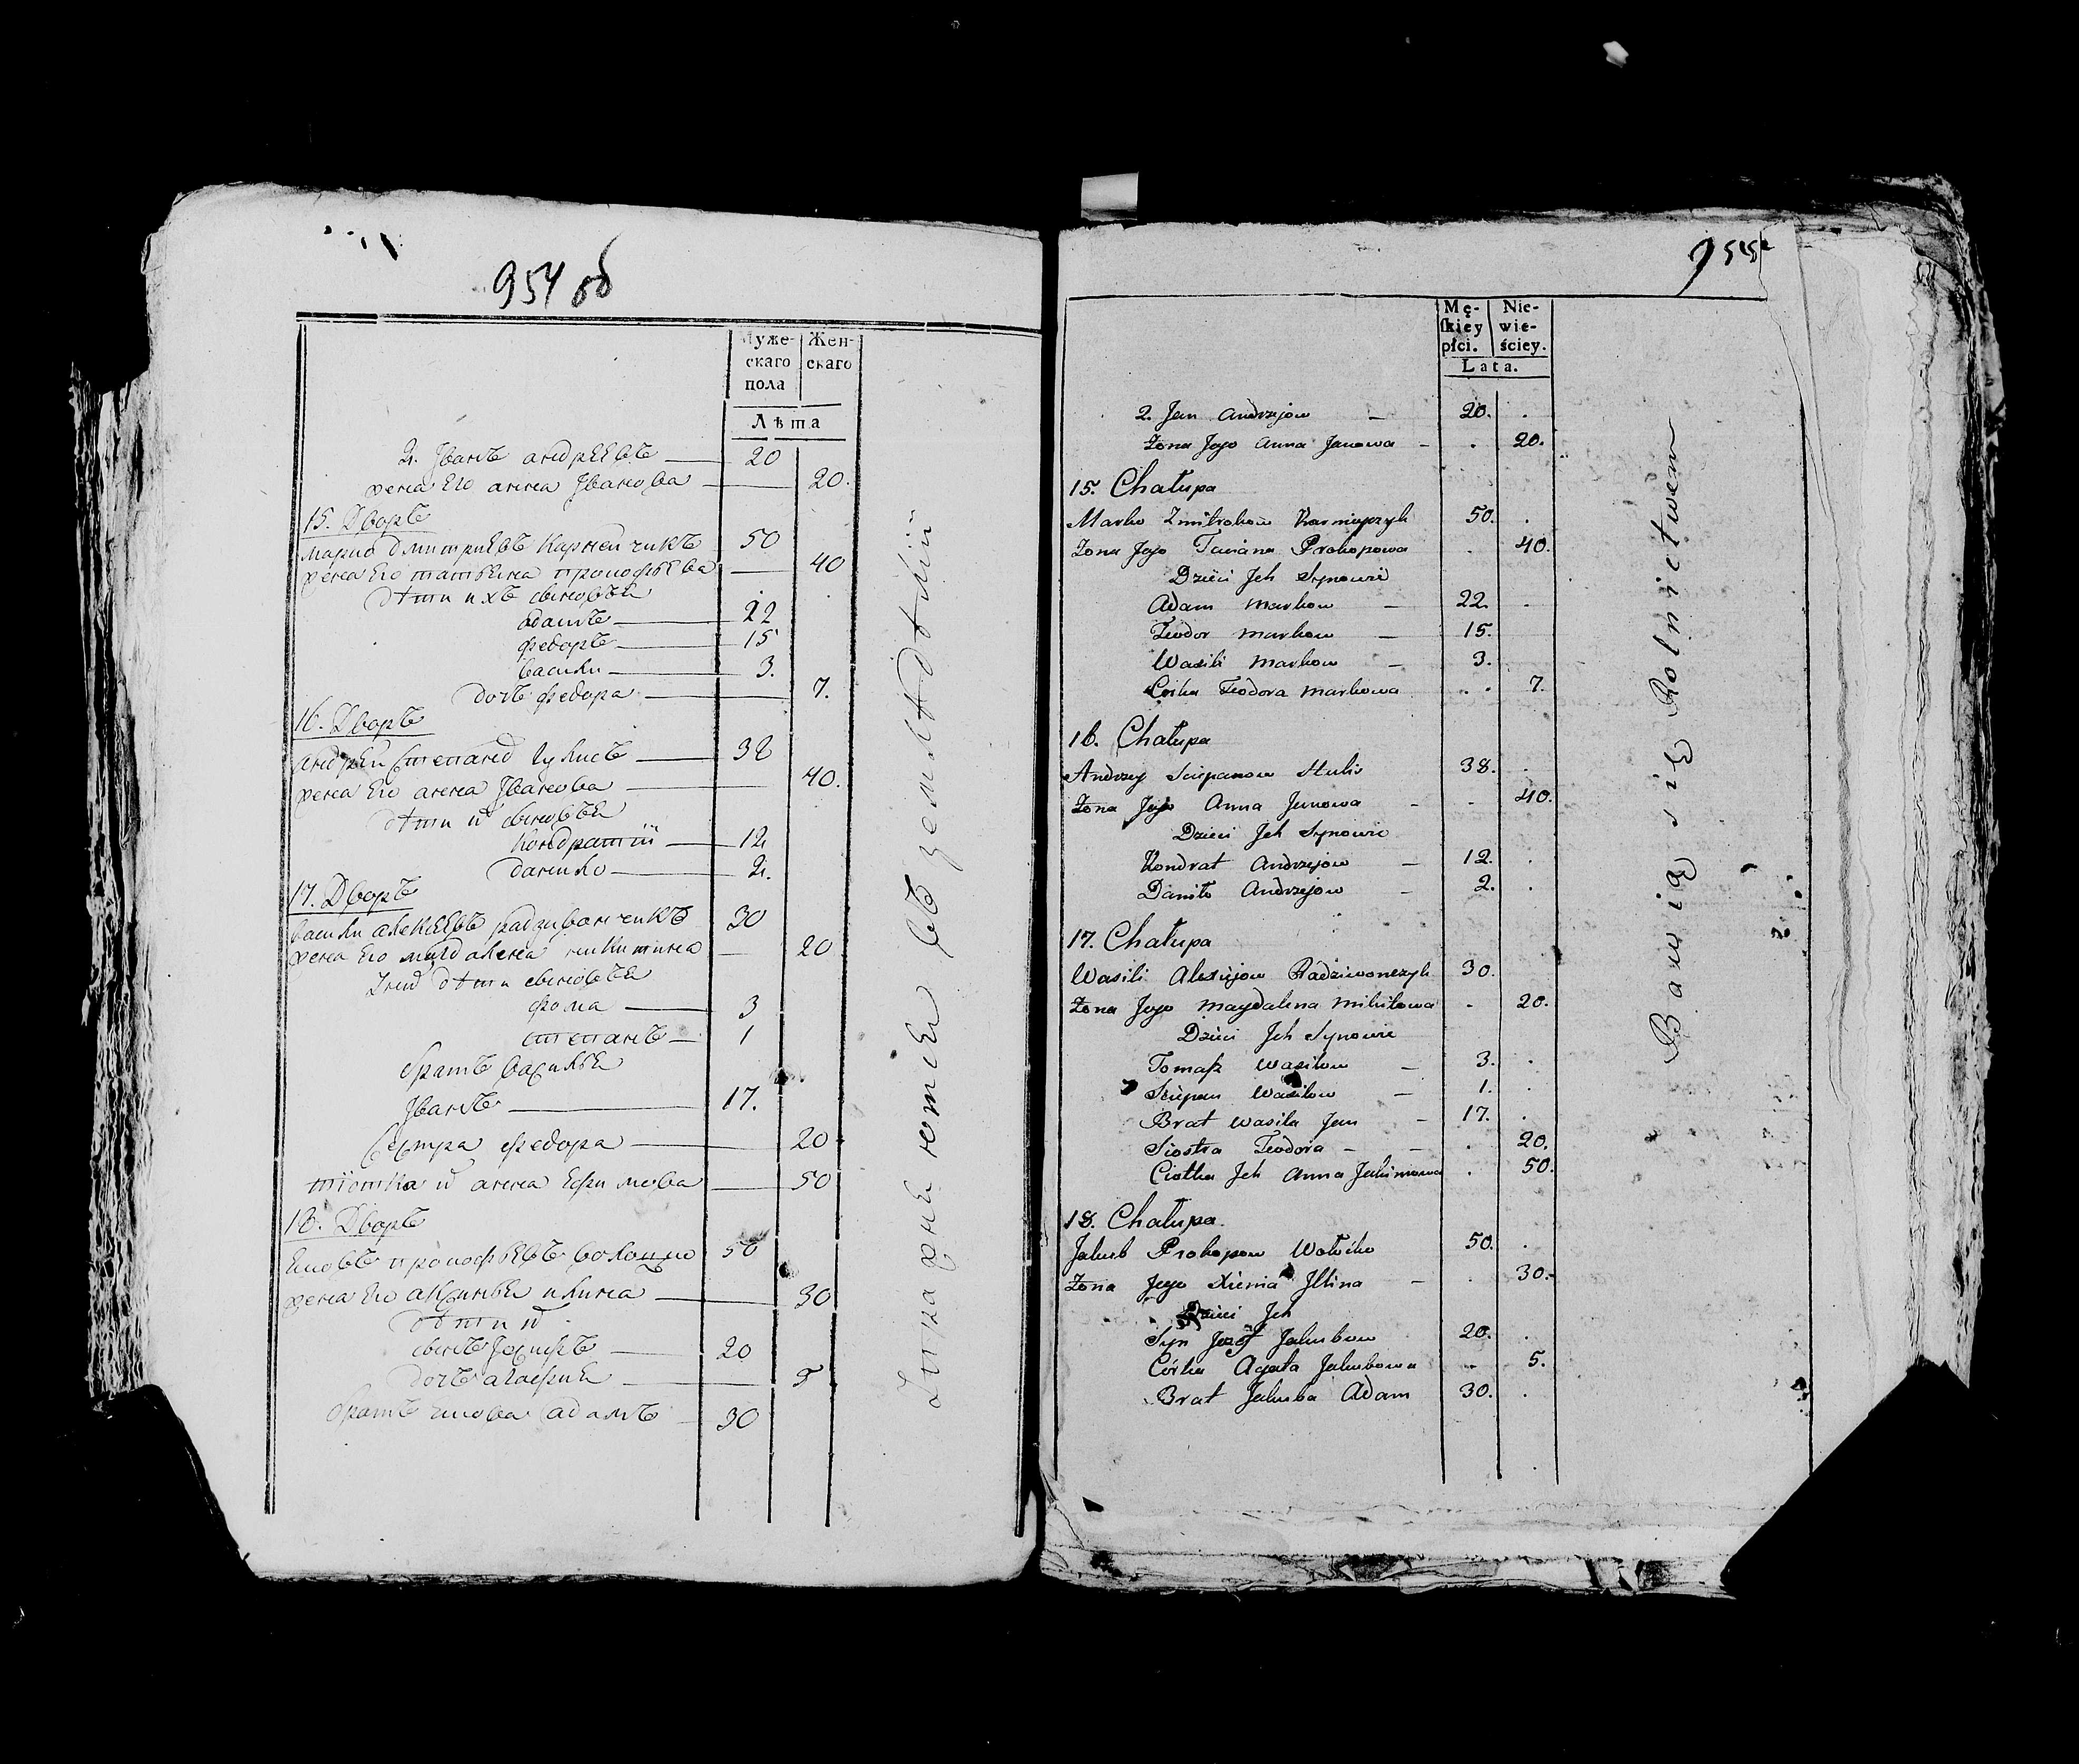 954 об
Муже-
скаго
пола
Жен-
скаго
Лѣта
2. Іванъ андреевъ 20
жена его анна Іванова 20.
15. Дворъ
марко дмитриевъ карнейчикъ 50
жена его татьяна прокофьева 40
дѣти ихъ сыновья
адамъ 22
федоръ 15
василй 3.
дочь федора 7.
16. Дворъ
андрей степановъ 38
жена его анна Іванова 40.
дѣти их сыновья
Кондратій 12
данило 2.
17. Дворъ
василй алексеевъ радзивончикъ 30
жена его магдалена никитина 20
дѣти сыновья
фома 3
степанъ 1
братъ василья
Іванъ 17.
сестра федора 20
тіотка их анна 50
18. Дворъ
прокофьевъ 50
жена его аксинья илина 30
дѣти их
сынъ Іосифъ 20
дочь агафия 5
братъ адамъ 30
въ земледѣлии
955
Mę-
ſkiey
płci.
Nie-
wie-
ściey.
Lata.
2. Jan Andrzejow 20.
Żona Jego Anna Janowa 20.
15. Chałupa
Marko Zmitrokow Karniejczyk 50.
Żona Jego Taciana Prokopowa 40.
Dzieci Jch Synowie
Adam Markow 22.
Teodor Markow 15.
Wasili Markow 3.
Corka Teodora Markowa 7.
16. Chałupa
Andrzey Sciepanow 38.
Żona Jego Anna Janowa 40.
Dzieci Jch Synowie
Kondrat Andrzejow 12.
Daniło Andrzejow 2.
17. Chałupa
Wasili Alexiejow Radziwonczyk 30.
Żona Jego Magdalena Mikitowa 20.
Dzieci Jch Synowie
Tomaſz Wasilow 3.
Sciepan Wasilow 1.
Brat Wasila Jan 17.
Siostra Teodora 20.
Ciotka Jch Anna Jachimowa 50.
18. Chałupa
Jakub Prokopow 50.
Żona Jego Xienia Jllina 30.
Dzieci Jch
Syn Jozef Jakubow 20.
Córka Agata Jakubowa 5.
Brat Jakuba Adam 30.
Bawią się Rolnictwem